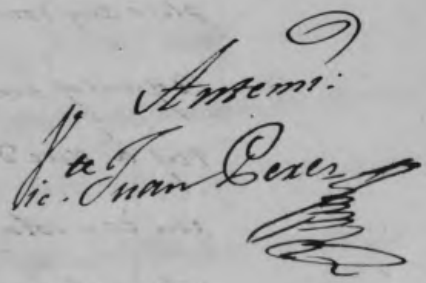 Antemi:
Vic.te Juan Perez